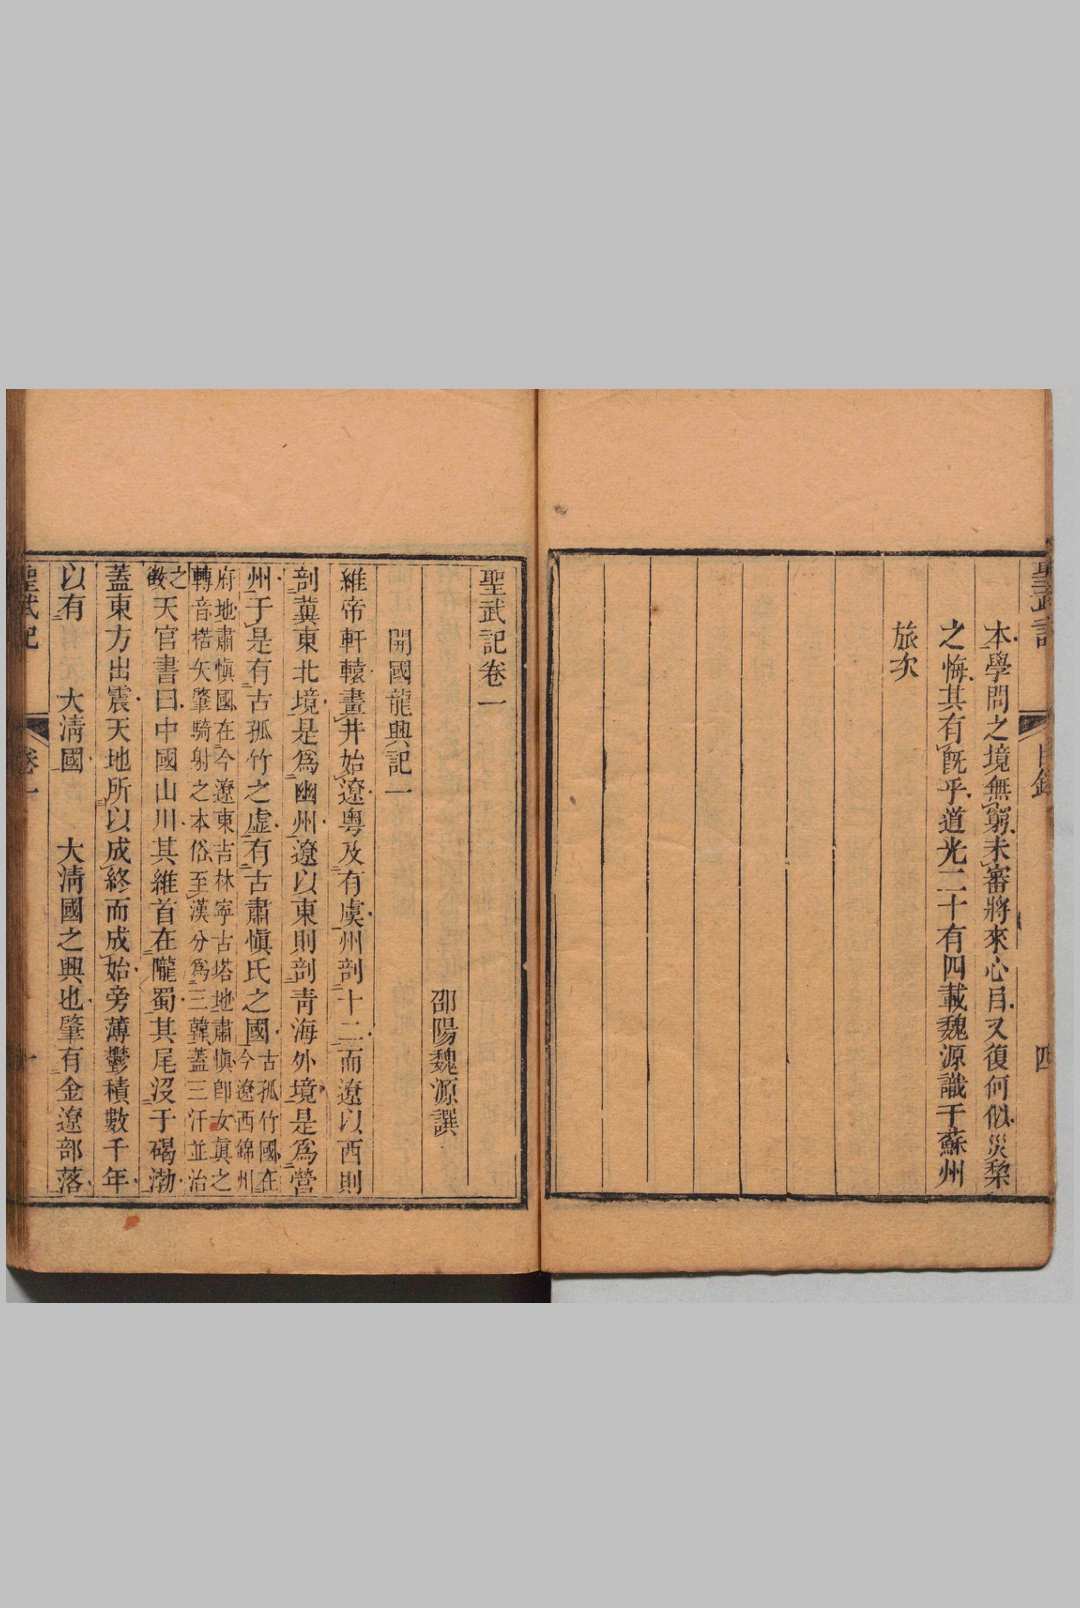 聖武記
目錄
四
本學問之境無窮未審將來心目又復何似災棃
之悔其有旣乎道光二十有四載魏源識于蘇州
旅次
聖武記卷一
邵陽魏源譔
開國龍興記一
維帝軒轅畫井始遼粵及有虞州剖十二而遼以西則
剖冀東北境是爲幽州遼以東則剖靑海外境是爲營
州于是有古孤竹之虛有古肅愼氏之國古孤竹國在
今遼西錦州
府地肅愼國在今遼東吉林寧古塔地肅愼卽女眞之
轉音楛矢肇騎射之本俗至漢分爲三韓蓋三汗並治
之
徵天官書曰中國山川其維首在隴蜀其尾沒于碣渤
蓋東方出震天地所以成終而成始旁薄鬱積數千年
以有 大淸國 大淸國之興也肇有金遼部落
聖武記
卷一
一